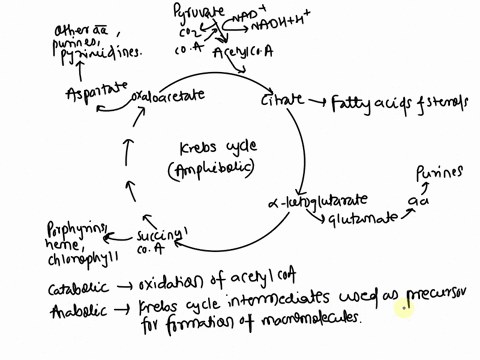 Pyruvate
NAD+
NADH+H+
CO2
CO.A
Acetyl CO.A
Other aa,
purines,
pyrimidines.
Aspartate
Oxaloacetate
Citrate → Fatty acids & sterols
Krebs cycle
(Amphibolic)
Purines
α-ketoglutarate
glutamate → aa
Porphyrins,
heme,
chlorophyll
Succinyl
CO.A
Catabolic → oxidation of acetyl coA
Anabolic → Krebs cycle intermediates used as precursor
for formation of macromolecules.